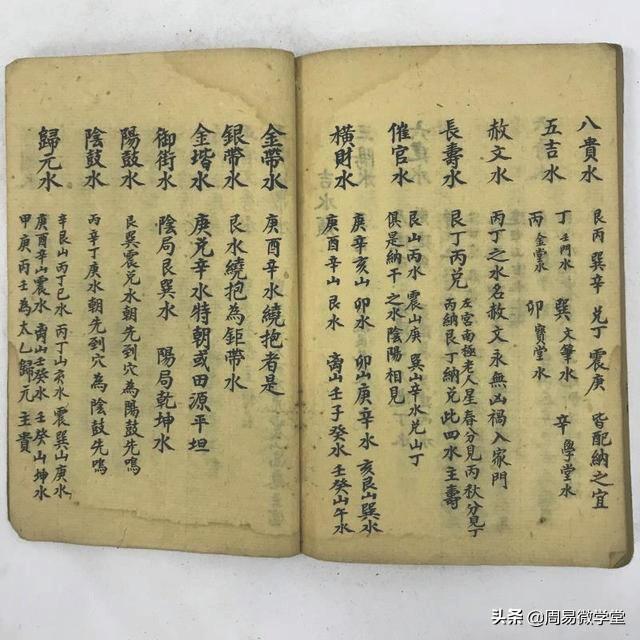 八貴水 艮丙 巽辛 兑丁 震庚 皆配納之宜
五吉水 丁 壬門水 巽 文筆水 辛 學堂水
丙 金堂水 卯 寶堂水
赦文水 丙丁之水名赦文永無凶禍入家門
長壽水 艮丁丙兑 左宮南極老人星春分見丙秋分見丁
丙納艮丁納兑此四水主壽
催官水 艮山丙水 震山庚 巽山辛水兑山丁
俱是納干之水陰陽相見
橫財水 庚辛亥山 卯水 卯山庚辛水 亥艮山巽水
庚酉辛山 艮水 离山壬子癸水 壬癸山午水
金帶水 庚酉辛水繞抱者是
銀帶水 艮水繞抱為鉅帶水
金堦水 庚兑辛水特朝或田源平坦
御街水 陰局艮巽水 陽局乾坤水
陽鼓水 艮巽震兑水朝先到穴為陽鼓先鳴
陰鼓水 丙辛丁庚水朝先到穴為陰鼓先鳴
歸元水 辛艮山丙丁巳水 丙丁山亥水 震巽山庚水
庚酉辛山震水 离山壬癸水 壬癸山坤水
甲庚丙壬為太乙歸元主貴
头条 @周易微学堂